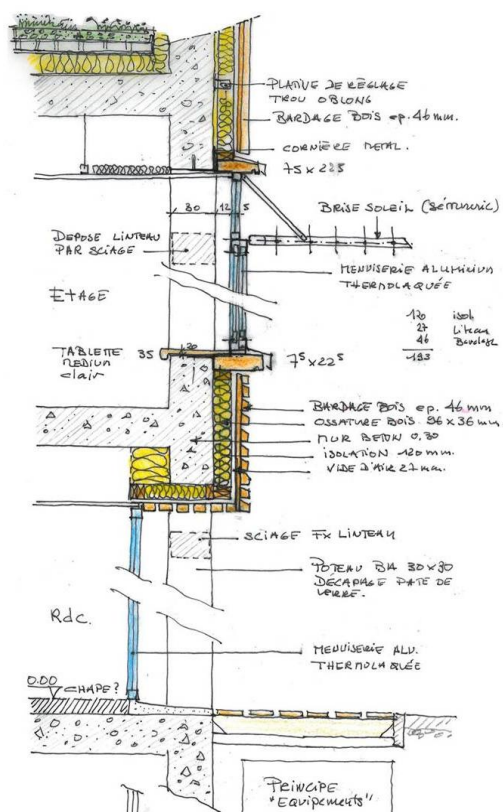 PLATINE DE RÉGLAGE
TROU OBLONG
BARDAGE BOIS ep. 46 mm.
CORNIÈRE METAL.
7⁵ x 22⁵
30 12 5
BRISE SOLEIL
DEPOSE LINTEAU
PAR SCIAGE
MENUISERIE ALUMINIUM
THERMOLAQUÉE
ETAGE
120 isol.
27 Liteau
46 Bardage
193
TABLETTE
MEDIUM
clair
35
30
7⁵ x 22⁵
BARDAGE BOIS ep. 46 mm
OSSATURE BOIS 96 x 36 mm
MUR BETON 0,30
ISOLATION 120 mm.
VIDE D'AIR 27 mm.
SCIAGE FX LINTEAU
POTEAU BA 30 x 30
DECAPAGE PATE DE
VERRE.
Rdc.
MENUISERIE ALU.
THERMOLAQUÉE
0.00
CHAPE?
PRINCIPE
"Equipements"